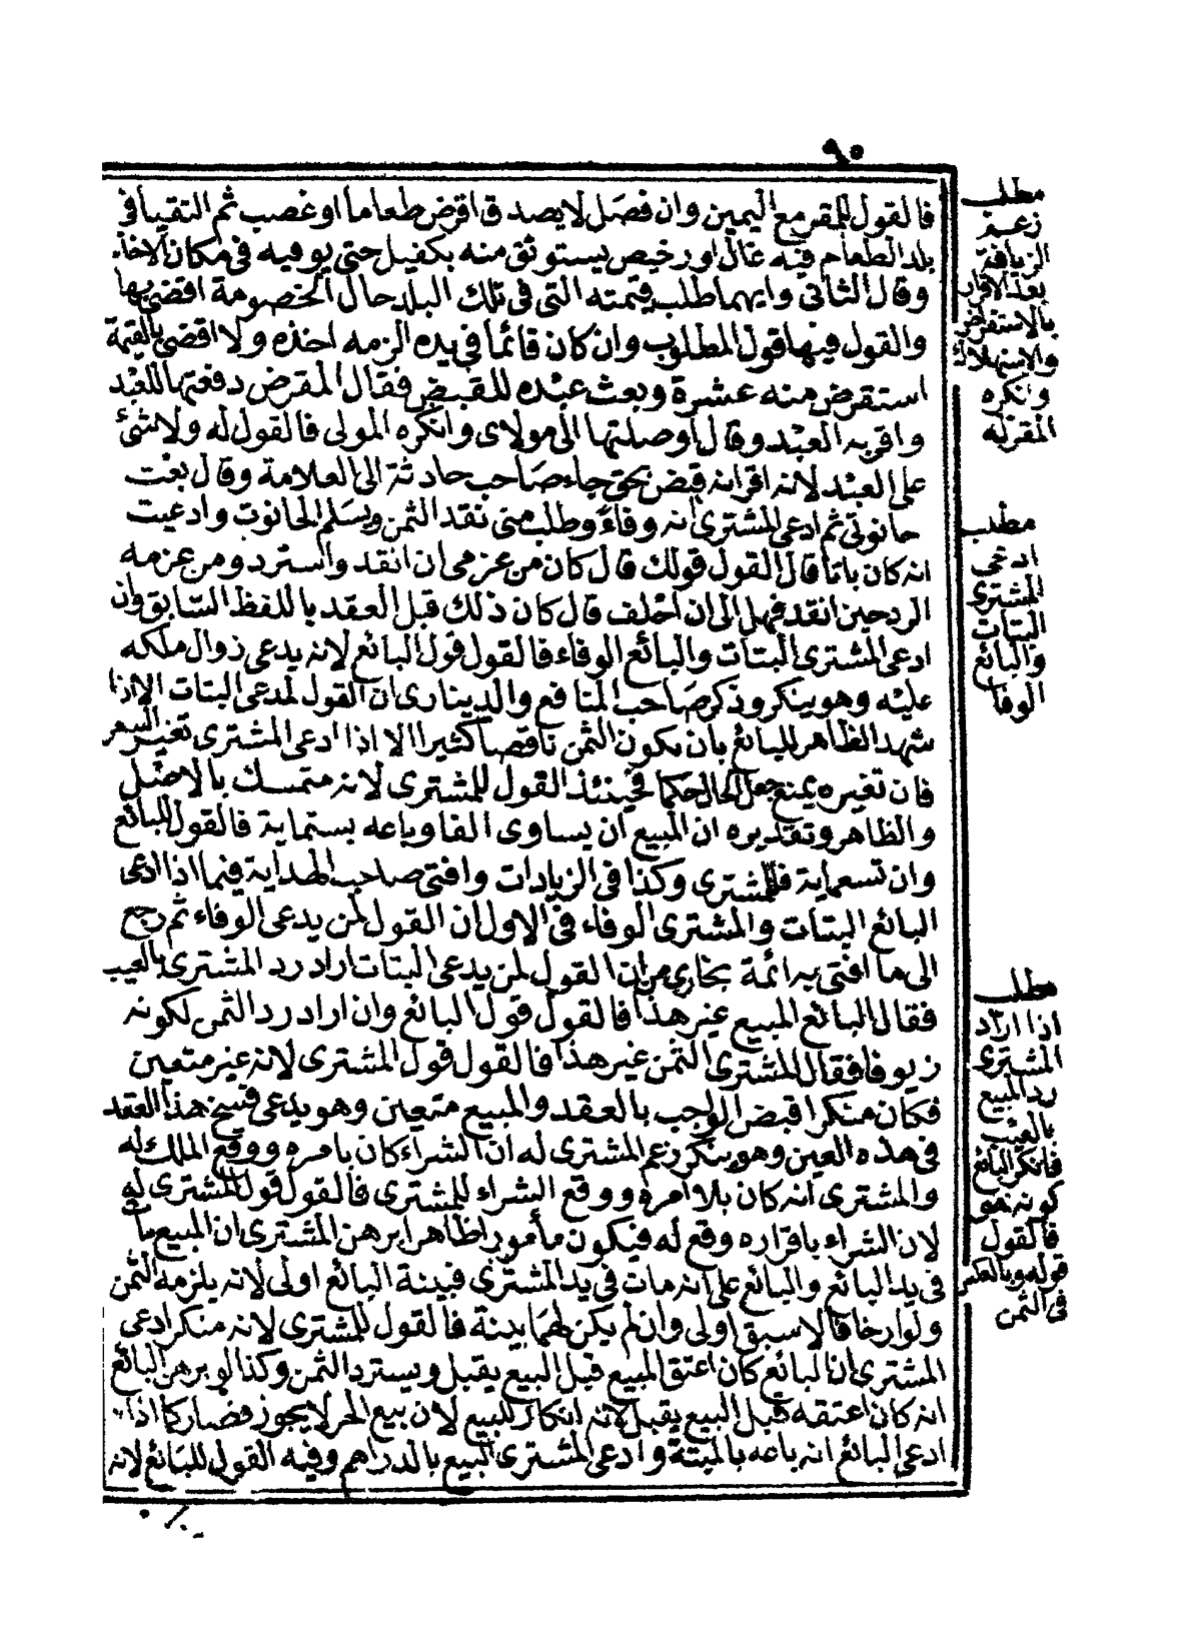 ٩٥
فالقول للمقر مع اليمين وان فصل لا يصدق اقرض طعاما او غصب ثم التقيا في
بلد الطعام فيه غال او رخيص يستوثق منه بكفيل حتى يوفيه في مكان الاخذ
وقال الثاني وايهما طلب قيمته التي في تلك البلد حال الخصومة اقضي بها
والقول فيها قول المطلوب وان كان قائما في يده الزمه اخذه ولا اقضي بالقيمة
استقرض منه عشرة وبعث عبده للقبض فقال المقرض دفعتها للعبد
واقر به العبد وقال اوصلتها الى مولاى وانكره المولى فالقول له ولا شئ
على العبد لانه اقر انه قبض بحق جاء صاحب حادثة الى العلامة وقال بعت
حانوتي ثم ادعى المشترى انه وفاء وطلب مني نقد الثمن ويسلم الحانوت وادعيت
انه كان باتا قال القول قولك قال كان من عزمى ان انقد واسترد ومن عزمه
الرد حين انقد فهل الى ان احلف قال كان ذلك قبل العقد باللفظ السابق وان
ادعى المشترى البتات والبائع الوفاء فالقول قول البائع لانه يدعى زوال ملكه
عليه وهو ينكر وذكر صاحب المنافع والدينارى ان القول لمدعى البتات الا اذا
شهد الظاهر للبائع بان يكون الثمن ناقصا كثيرا الا اذا ادعى المشترى تغير السعر
فان تغيره يمنع جعل الحال حكما فحينئذ القول للمشترى لانه متمسك بالاصل
والظاهر وتقديره ان المبيع ان يساوى الفا وباعه بستماية فالقول للبائع
وان تسعماية فللمشترى وكذا في الزيادات وافتى صاحب الهداية فيما اذا ادعى
البائع البتات والمشترى الوفاء في الاول ان القول لمن يدعى الوفاء ثم رجع
الى ما افتى به ائمة بخارى من ان القول لمن يدعى البتات اراد رد المشترى بالعيب
فقال البائع المبيع غير هذا فالقول قول البائع وان اراد رد الثمن لكونه
زيوفا فقال المشترى الثمن غير هذا فالقول قول المشترى لانه غير متعين
فكان منكرا قبض الواجب بالعقد والمبيع متعين وهو يدعى فسخ هذا العقد
في هذه العين وهو ينكر زعم المشترى له ان الشراء كان بامره ووقع الملك له
والمشترى انه كان بلا امره ووقع الشراء للمشترى فالقول قول المشترى له
لان الشراء باقراره وقع له فيكون مأمورا ظاهرا برهن المشترى ان المبيع مات
في يد البائع والبائع على انه مات في يد المشترى فبينة البائع اولى لانه يلزمه الثمن
ولو ارخا فالاسبق اولى وان لم يكن لهما بينة فالقول للمشترى لانه منكر ادعى
المشترى ان البائع كان اعتق المبيع قبل البيع يقبل ويسترد الثمن وكذا لو برهن البائع
انه كان اعتقه قبل البيع يقبل لانه انكار للبيع لان بيع الحر لا يجوز فصار كما اذا
ادعى البائع انه باعه بالميتة وادعى المشترى البيع بالدراهم وفيه القول للبائع لانه
مطلب
زعم
الزيافة
بعد الاقرار
بالاستقراض
والاستهلاك
وانكره
المقر له
مطلب
ادعى
المشترى
البتات
والبائع
الوفا
مطلب
اذا اراد
المشترى
رد المبيع
بالعيب
فانكر البائع
كونه هو
فالقول
قوله وبالعكس
في الثمن